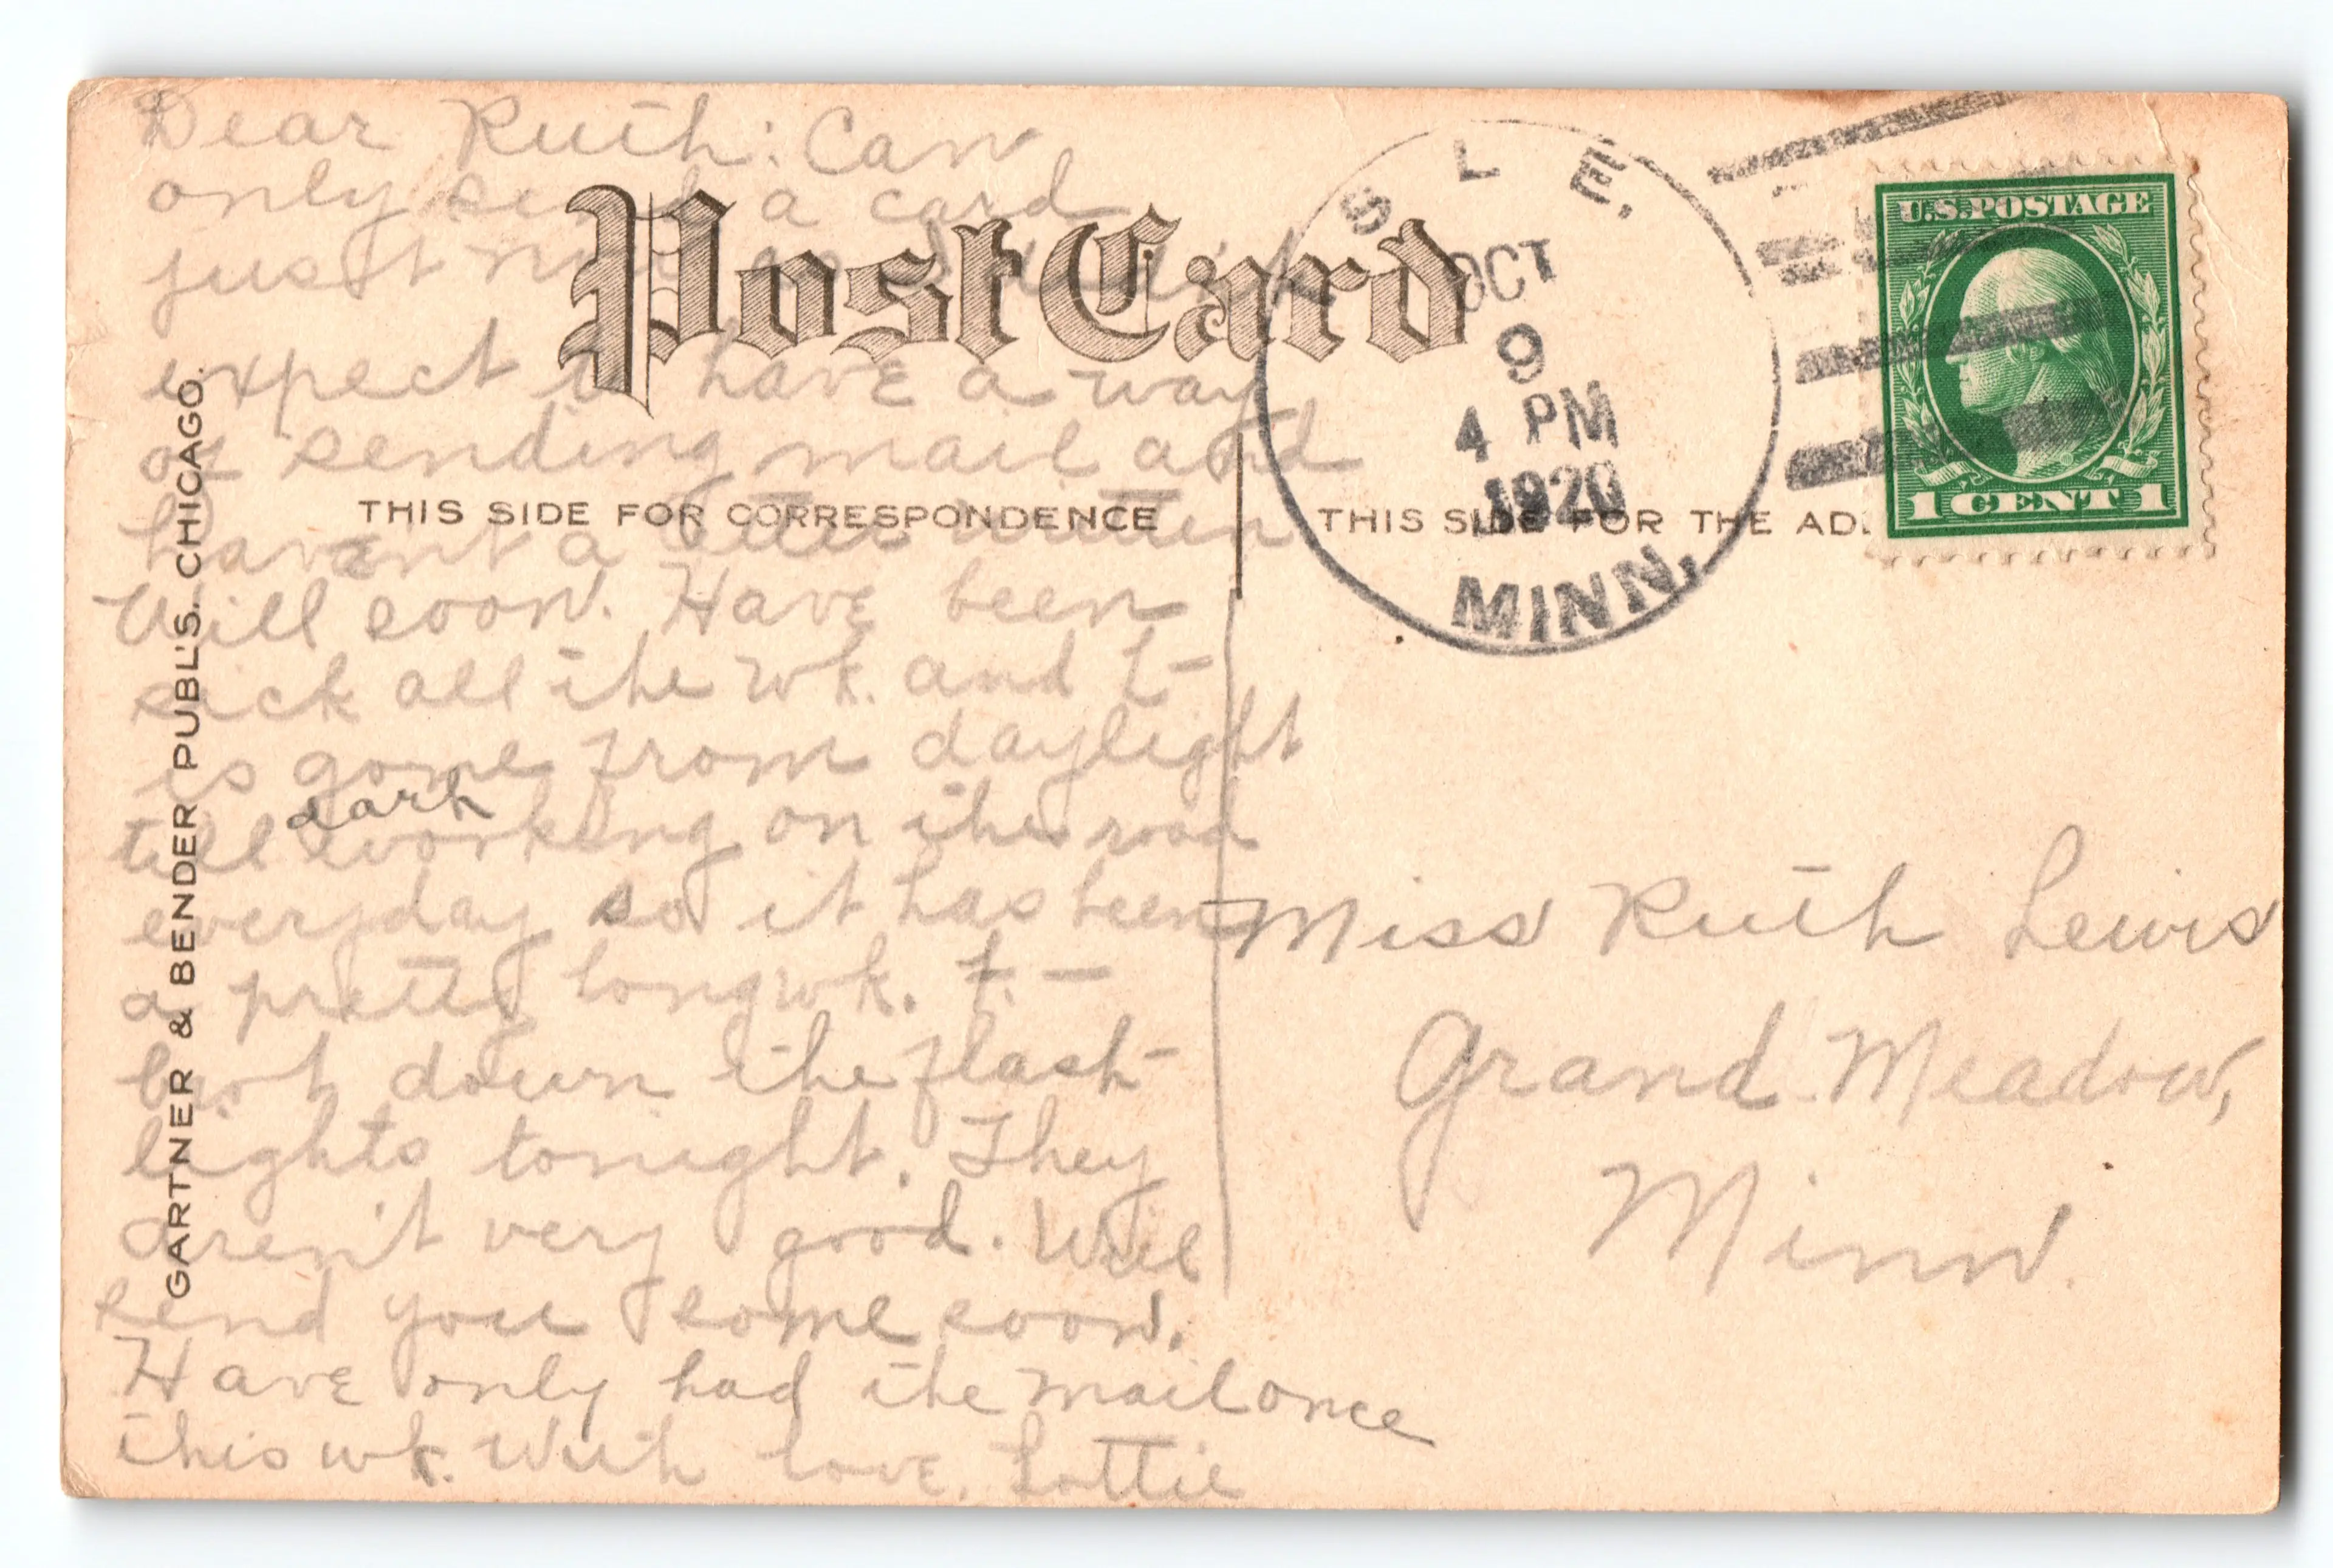 Dear Ruth: Can
only send a card
just now as I didn't
expect to have a way
of sending mail and
havent a letter written
Will soon. Have been
sick all the wk. and L-
is gone from daylight
till dark working on the road
everyday so it has been
a pretty long wk. L-
bro't down the flash-
lights tonight. They
aren't very good. Will
send you some soon.
Have only had the mail once
this wk. With love, Lottie
Post Card
THIS SIDE FOR CORRESPONDENCE
THIS SIDE FOR THE AD
GARTNER & BENDER PUBL'S. CHICAGO.
SLE,
OCT
9
4 PM
1920
MINN.
U.S. POSTAGE
1 CENT 1
Miss Ruth Lewis
Grand Meadow,
Minn.